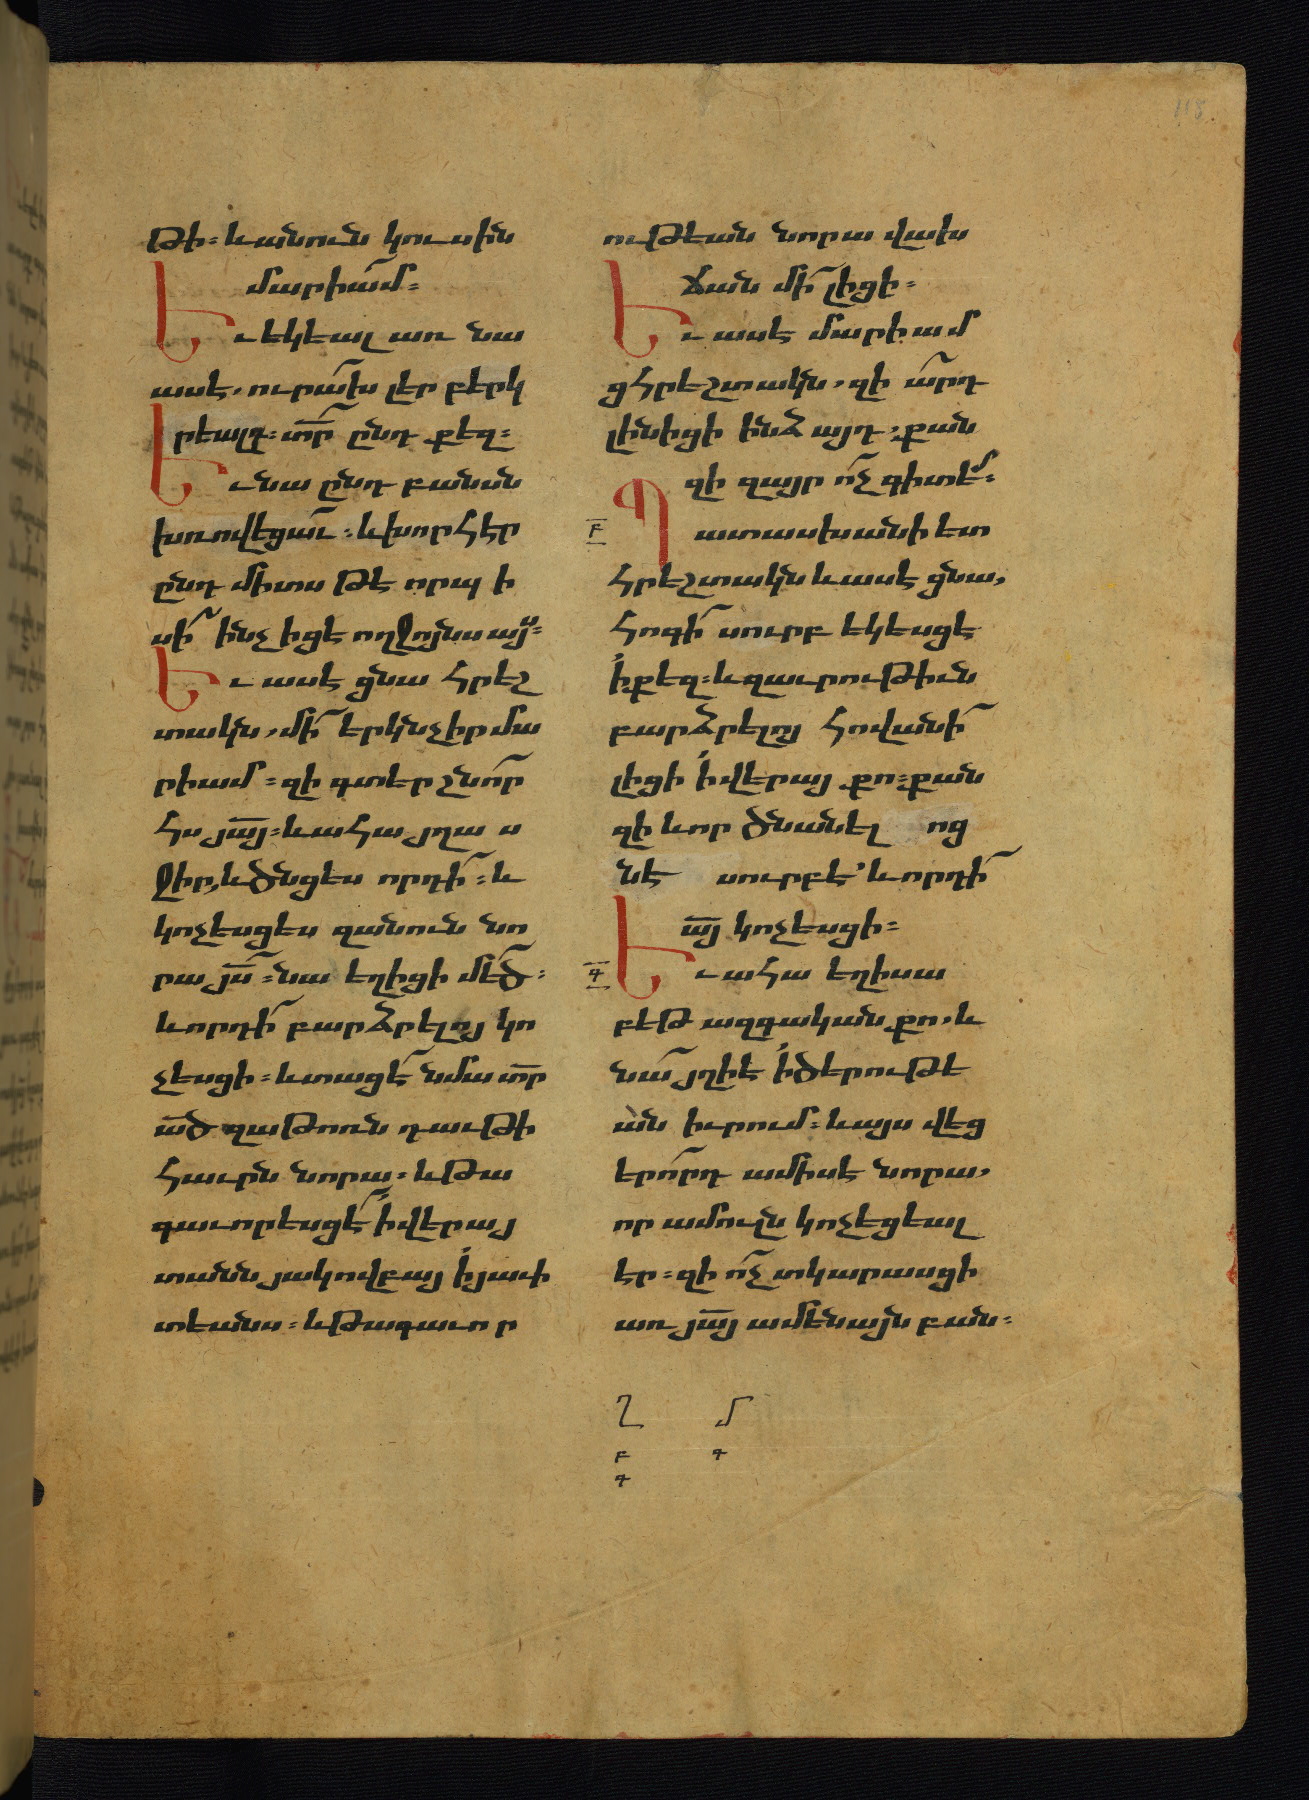 թի։ և անուն կուսին
մարիամ։
Եւ եկեալ առ նա
ասէ, ուրախ լեր բերկ
րեալդ։ տր ընդ քեզ։
Եւ նա ընդ բանսն
խռովեցաւ։ և խորհէր
ընդ միտս թէ որպի
սի ինչ իցէ ողջոյնս այս։
Եւ ասէ ցնա հրեշ
տակն, մի երկնչիր մա
րիամ։ զի գտեր շնոր
հս յայ։ և ահա յղաս
ջիր, և ծնցես որդի։ և
կոչեսցես զանուն նո
րա յս։ նա եղիցի մեծ։
և որդի բարձրելոյ կո
չեսցի։ և տացէ նմա տր
ած զաթոռն դաւթի
հաւրն նորա։ և թա
գաւորեսցէ ի վերայ
տանն յակովբայ ի յաւի
տեանս։ և թագաւոր
ութեան նորա վախ
ճան մի լիցի։
Եւ ասէ մարիամ
ցհրեշտակն, զի արդ
լինիցի ինձ այդ, քան
զի զայր ոչ գիտեմ։
բ Պատասխանի ետ
հրեշտակն և ասէ ցնա,
հոգի սուրբ եկեսցէ
ի քեզ։ և զաւրութիւն
բարձրելոյ հովանի
լիցի ի վերայ քո։ քան
զի և որ ծնանել ոց
նէ սուրբ է՝ և որդի
այ կոչեսցի։
գ Եւ ահա եղիսա
բեթ ազգական քո, և
նա յղի է ի ծերութե
ան իւրում։ և այս վեց
երորդ ամիս է նորա,
որ ամուլն կոչեցեալ
էր։ զի ոչ տկարասցի
առ յայ ամենայն բան։
Ղ Մ
բ գ
գ
118